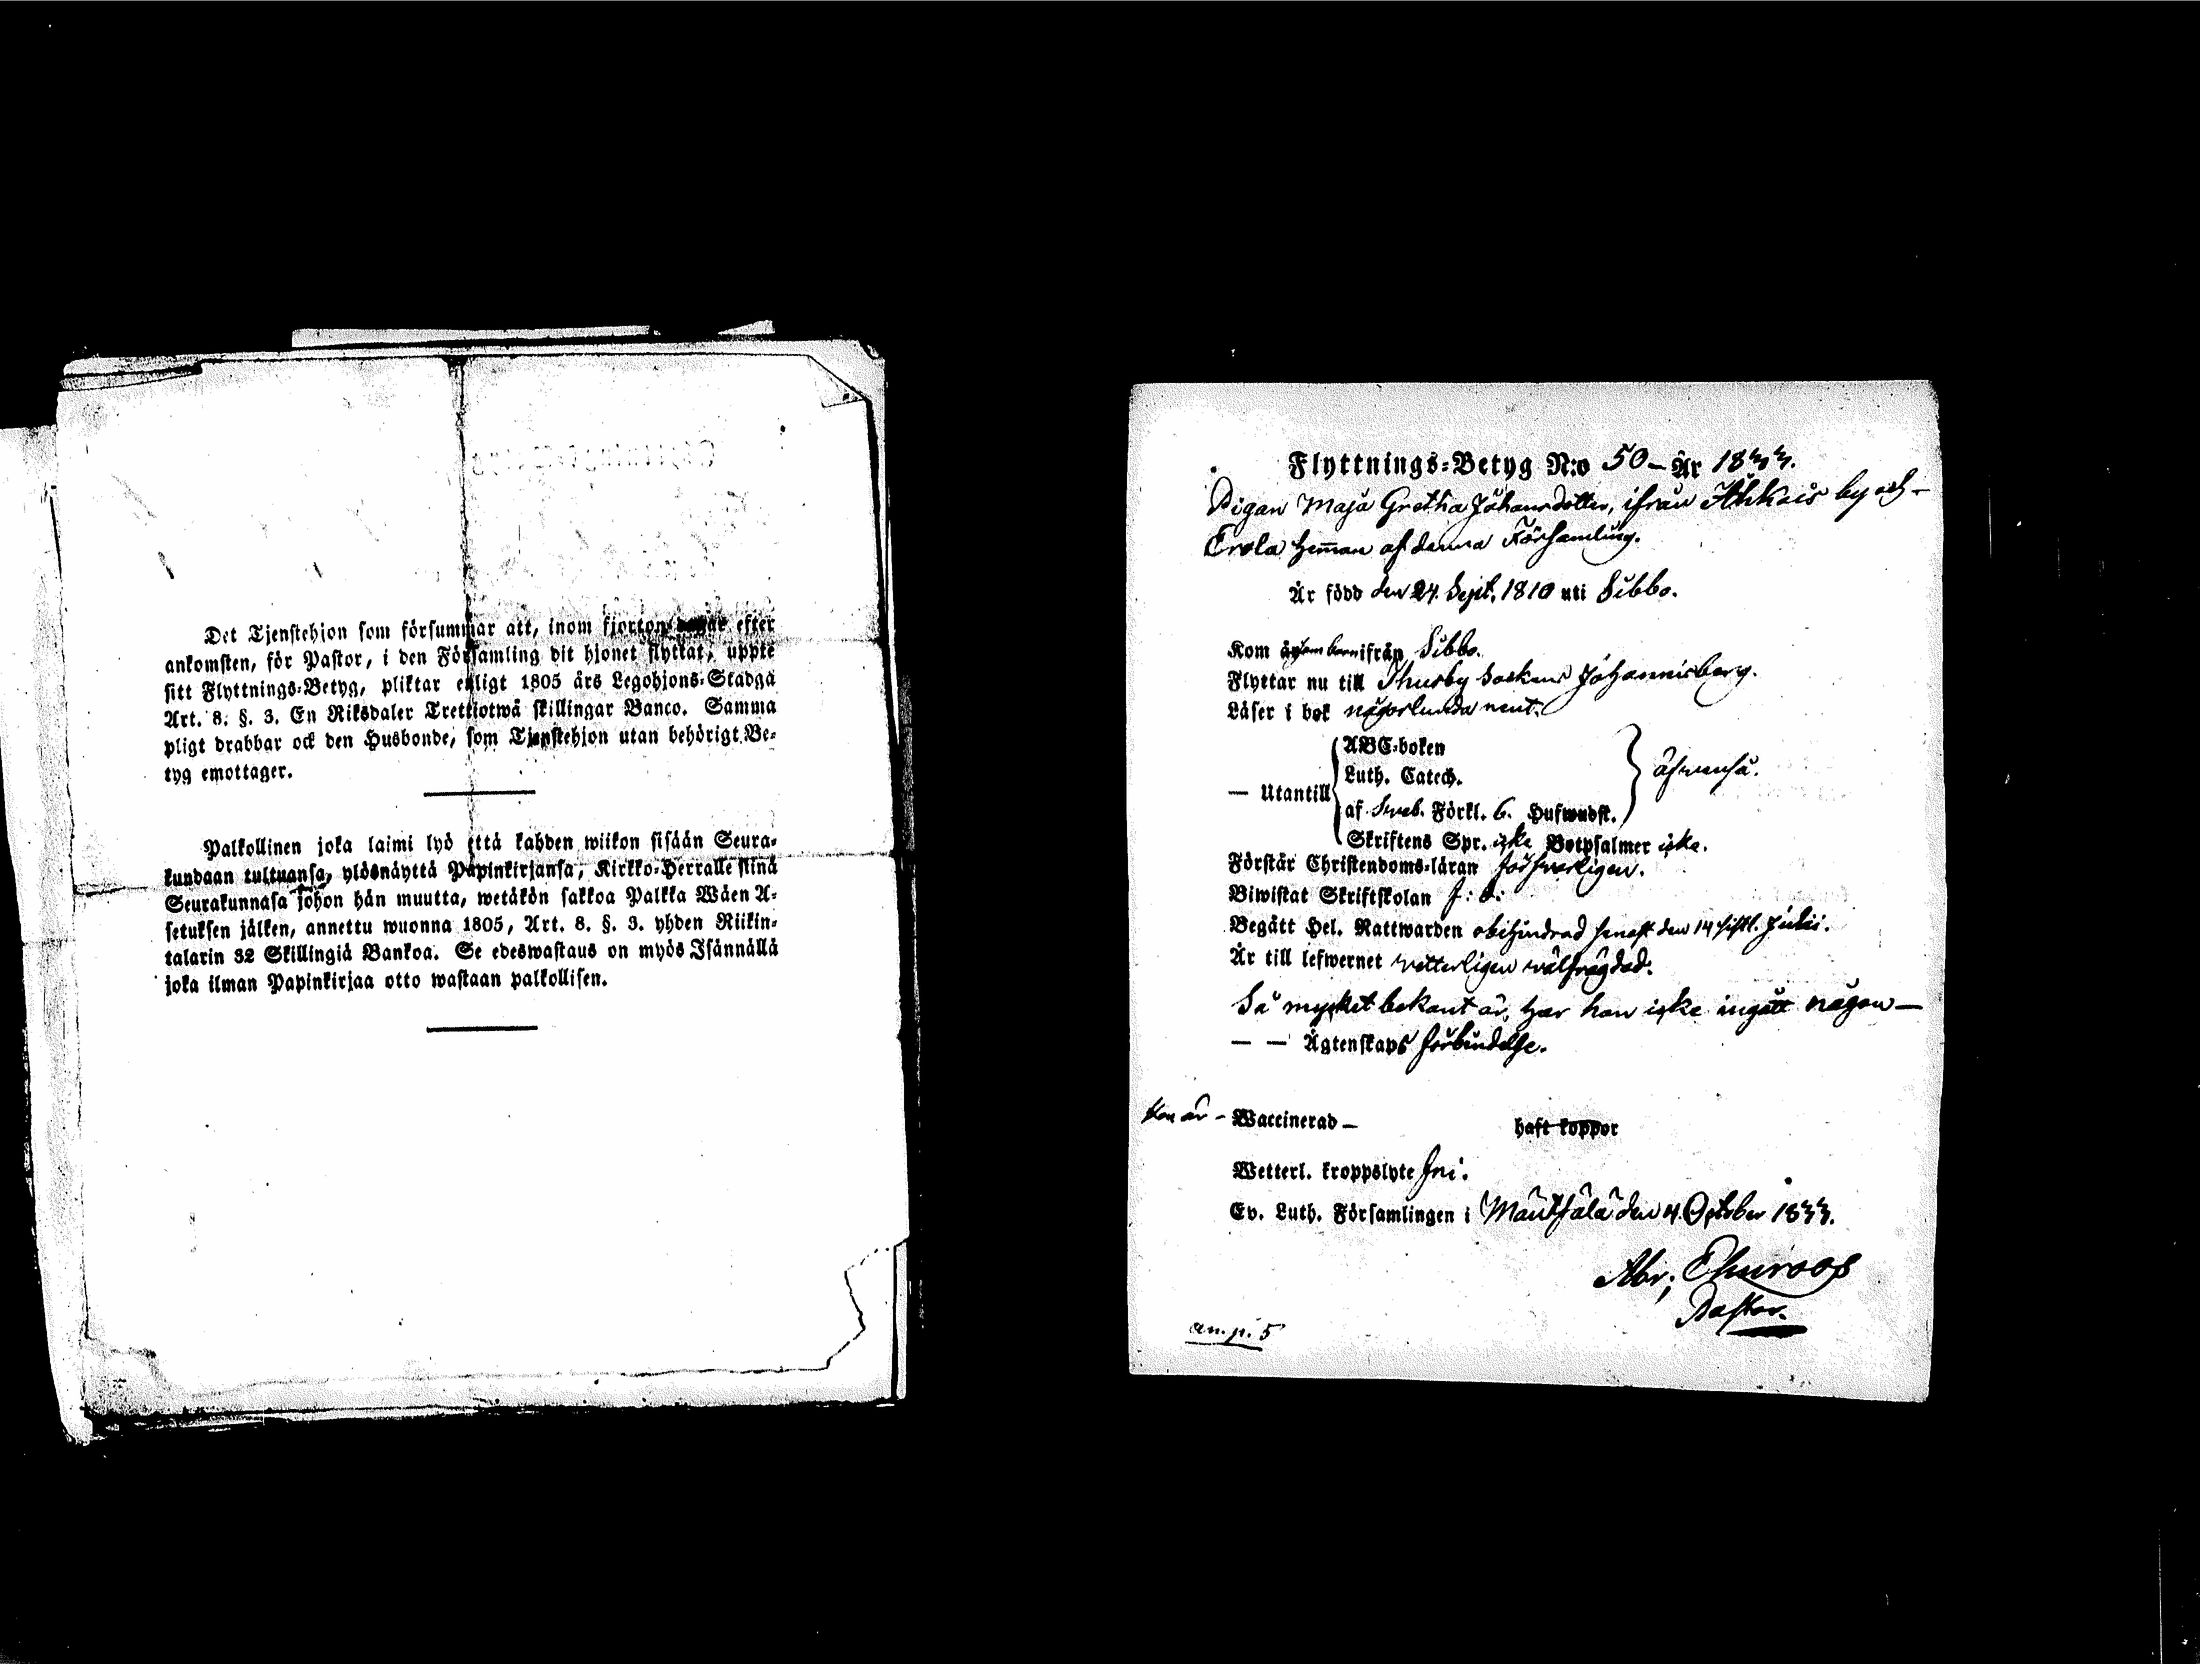 Det Tjenstehjon som försummar att, inom fjorton dagar efter
ankomsten, för Pastor, i den Församling dit hjonet flyttat, uppte
sitt Flyttnings-Betyg, pliktar enligt 1805 års Legohjons-Stadga
Art. 8. §. 3. En Riksdaler Trettiotwå skillingar Banco. Samma
pligt drabbar ock den Husbonde, som Tjenstehjon utan behörigt Be-
tyg emottager.
Palkollinen joka laimi lyö että kahden wiikon sisään Seura-
kundaan tultuansa, ylösnäyttä Papinkirjansa, Kirkko-Herralle siinä
Seurakunnasa johon hän muutta, wetäkön sakkoa Palkka Wäen A-
setuksen jälken, annettu wuonna 1805, Art. 8. §. 3. yhden Riikin-
talarin 32 Skillingiä Bankoa. Se edeswastaus on myös Isännällä
joka ilman Papinkirjaa otto wastaan palkollisen.
Flyttnings-Betyg N:o 50 - År 1833.
Pigan Maja Gretha Johansdotter, ifrån Ahkais by och -
Erola heman af denna Församling.
Är född den 24. Sept. 1810 uti Sibbo.
Kom ifrån Sibbo.
Flyttar nu till Thusby Sockens Johannisberg.
Läser i bok någorlunda rent.
— Utantill
ABC-boken
Luth. Catech.
af Sveb. Förkl. 6. Hufwudst.
äfvenså.
Skriftens Spr. icke Botpsalmer icke.
Förstår Christendoms-läran försvarligen.
Biwistat Skriftskolan J: d:
Begått Hel. Nattwarden obehindrad senast den 14 sistl. Julii.
Är till lefwernet vetterligen välfrägdad.
Så mycket bekant är, har hon icke ingått någon —
— — Ägtenskaps förbindelse.
Hon är - Waccinerad —
haft koppor
Wetterl. kroppslyte fri.
Ev. Luth. Församlingen i Mäntsälä den 4. October 1833.
Abr; Churoos
Pastor.
an. p. 5